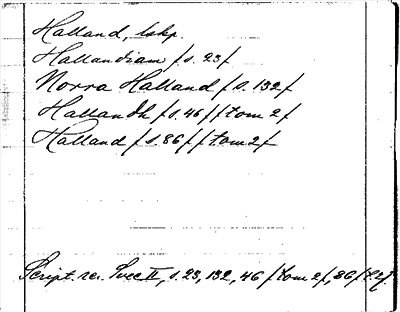 Halland, lskp.
Hallandiam /s. 23/
Norra Halland /s. 132/
Hallandh /s. 46/ /tom 2/
Halland /s. 86/ /tom 2/
Script. rer. Svec II, s. 23, 132, 46 /tom 2/, 86 /t. 2/.